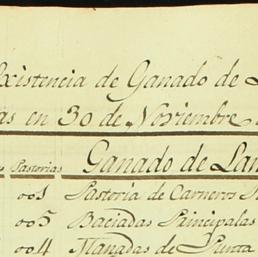 Existencia de Ganado de L
as en 30 de Noviembre
Pastorias Ganado de Lan
001 Pastoria de Carneros
005 Baciadas Painicipalas
004 Manadas de Punta